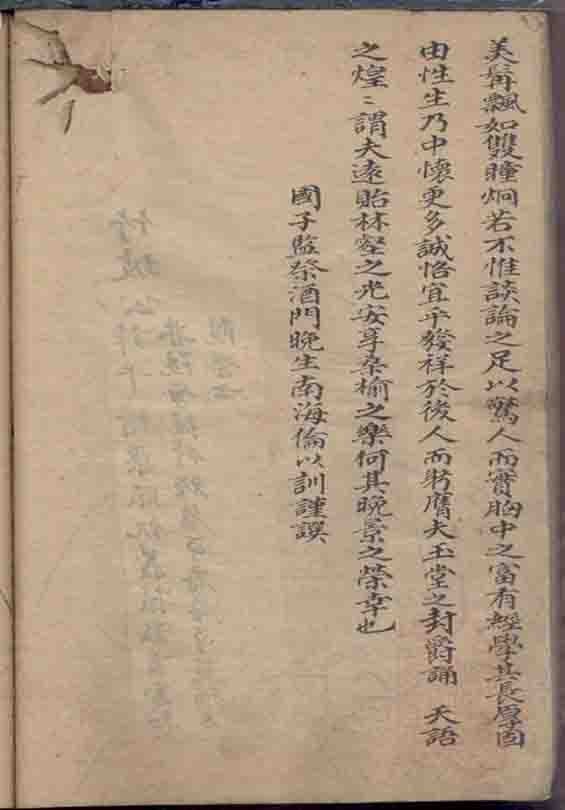 美髯飄如雙瞳炯若不惟談論之足以驚人而實胸中之富有經學其長厚固
由性生乃中懷更多誠恪宜乎發祥於後人而躬膺夫玉堂之封爵誦 天語
之煌〻謂夫遠貽林壑之光安享桑榆之樂何其晚景之榮幸也
國子監祭酒門晚生南海倫以訓謹譔